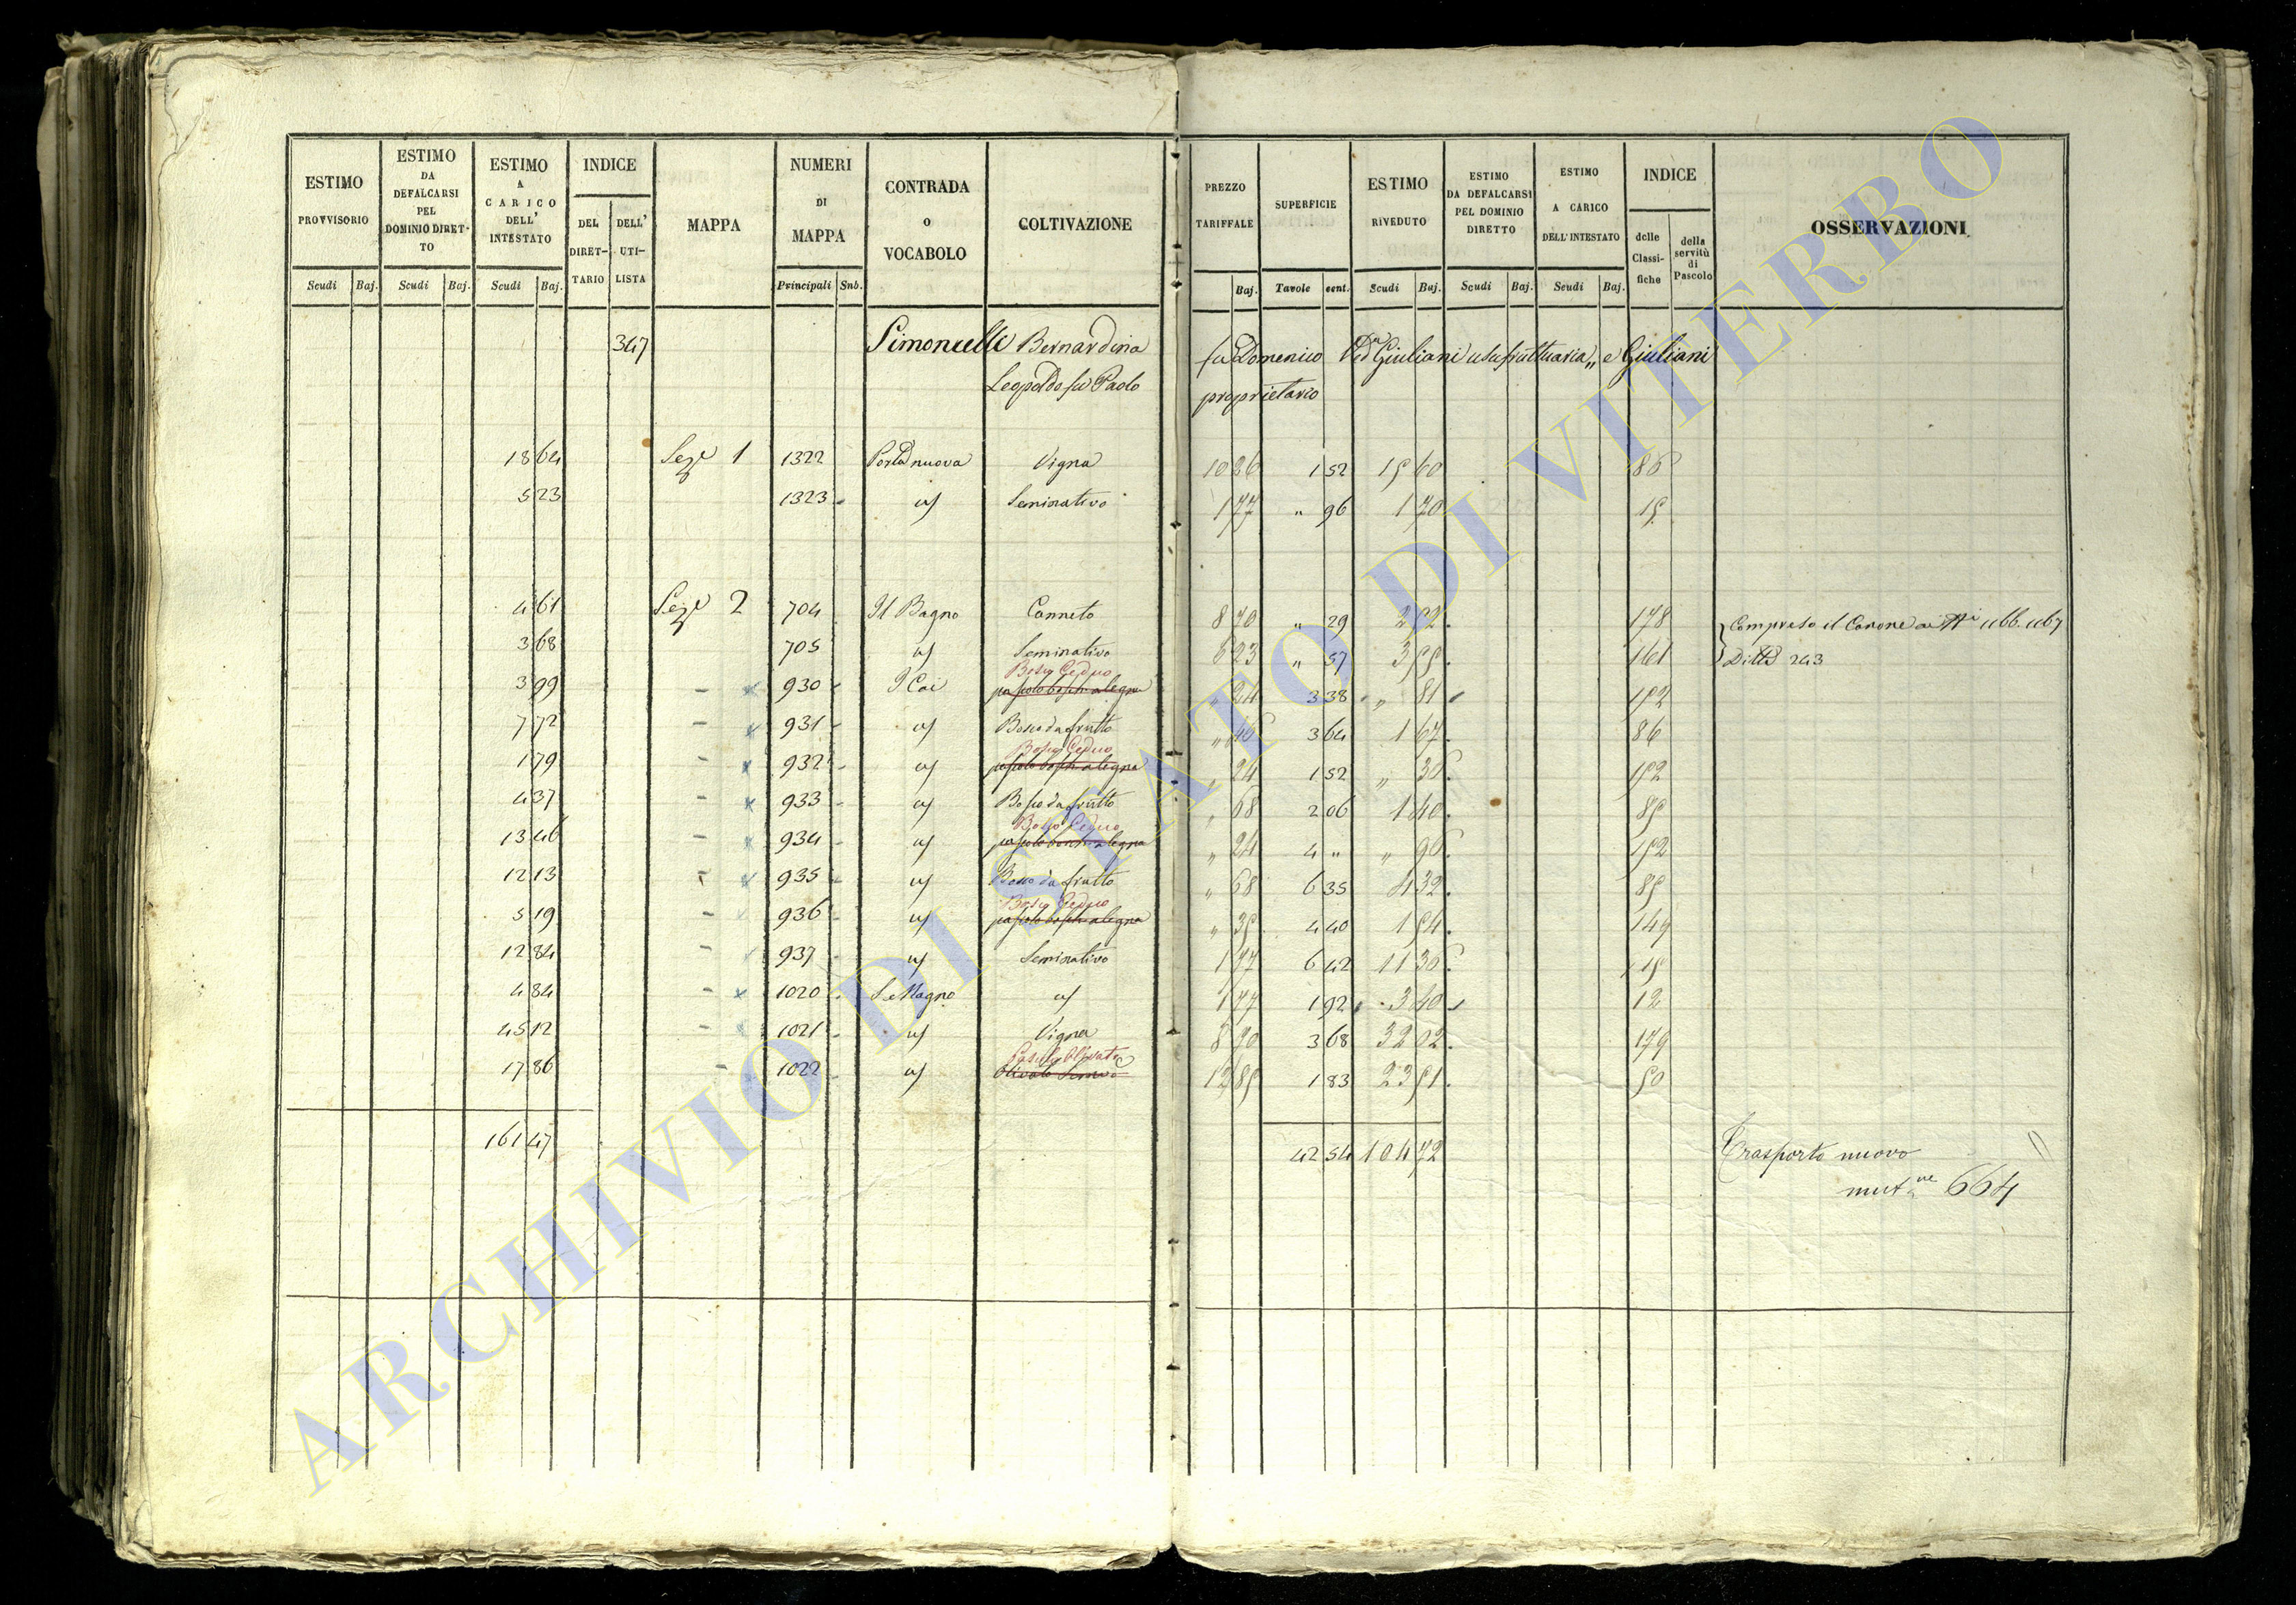 ESTIMO PROVVISORIO
ESTIMO DA DEFALCARSI PEL DOMINIO DIRETTO
ESTIMO A CARICO DELL' INTESTATO
INDICE
DEL DIRETTARIO
DELL' UTILISTA
MAPPA
NUMERI DI MAPPA
CONTRADA o VOCABOLO
COLTIVAZIONE
PREZZO TARIFFALE
SUPERFICIE
ESTIMO RIVEDUTO
ESTIMO DA DEFALCARSI PEL DOMINIO DIRETTO
ESTIMO A CARICO DELL' INTESTATO
INDICE
delle Classifiche
della servitù di Pascolo
OSSERVAZIONI
Scudi Baj. Scudi Baj. Scudi Baj. Principali Sub. Baj. Tavole cent. Scudi Baj. Scudi Baj. Scudi Baj.
347 Simoncelli Bernardina fu Domenico Ved.a Giuliani usufruttuaria,, e Giuliani
Leopoldo fu Paolo proprietario
18 64 Seze 1 1322 Porta nuova Vigna 10 26 1 52 15 60 86
5 23 1323 a/ Seminativo 1 77 " 96 1 70 15
4 61 Seze 2 704 Il Bagno Canneto 8 70 " 29 2 52 178 Compreso il Canone ai 1166. 1167
3 68 705 a/ Seminativo 6 23 " 57 3 55 161 Ditta 243
Bosco Ceduo
3 99 - 930 I Cai pascolo bosch. a legna " 24 3 38 " 81 152
7 72 - 931 a/ Bosco da frutto " 46 3 64 1 67 86
Bosco Ceduo
1 79 - 932 a/ pascolo bosch. a legna " 24 1 52 " 36 152
4 37 - 933 a/ Bosco da frutto " 68 2 06 1 40 85
Bosco Ceduo
13 46 - 934 a/ pascolo bosch. a legna " 24 4 " " 96 152
12 13 - 935 a/ Bosco da frutto " 68 6 35 4 32 85
Bosco Ceduo
5 19 - 936 a/ pascolo bosch. a legna " 35 4 40 1 54 149
12 84 - 937 a/ Seminativo 1 77 6 42 11 36 15
4 84 - 1020 S. Magno a/ 1 77 1 92 3 40 12
45 12 - 1021 a/ Vigna 8 70 3 68 32 02 179
17 86 - 1022 a/ 12 85 1 83 23 51 50
161 47 42 54 104 72 Trasporto nuovo
mut.ne 664
ARCHIVIO DI STATO DI VITERBO